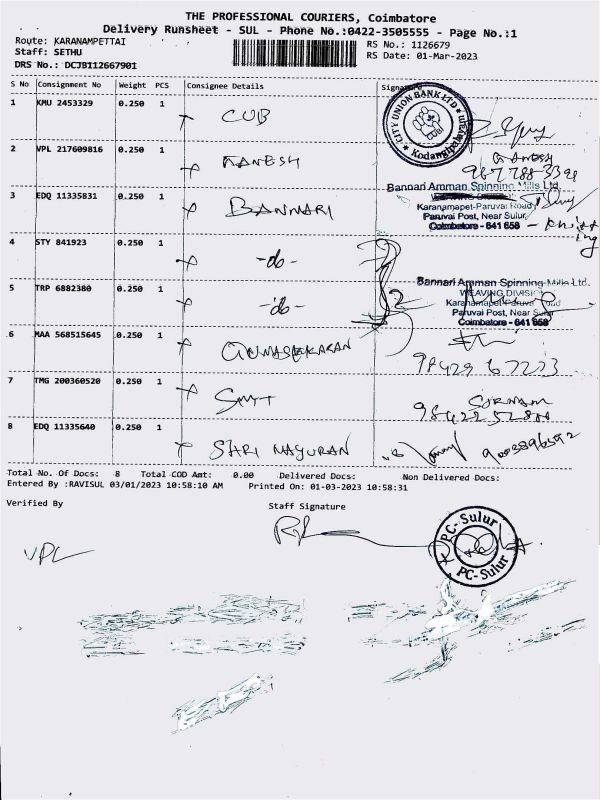 THE PROFESSIONAL COURIERS, Coimbatore
Delivery Runsheet - SUL - Phone No.:0422-3505555 - Page No.:1
Route: KARANAMPETTAI
RS No.: 1126679
Staff: SETHU
RS Date: 01-Mar-2023
DRS No.: DCJB112667901
S No Consignment No Weight PCS Consignee Details Signature
1 KMU 2453329 0.250 1 CUB
CITY UNION BANK LTD
CUB
Kodangipalayam
2 VPL 217609816 0.250 1 RANESH
3 EDQ 11335831 0.250 1 BANNARI
Bannari Amman Spinning Mills Ltd.
Karanampet-Paruvai Road
Paruvai Post, Near Sulur,
Coimbatore - 641 658
4 STY 841923 0.250 1 -do-
5 TRP 6882380 0.250 1 -do-
Bannari Amman Spinning Mills Ltd.
WEAVING DIVISION
Karanampet-Paruvai Road
Paruvai Post, Near Sulur
Coimbatore - 641 658
6 MAA 568515645 0.250 1 GUNASEKARAN
98429 67223
7 TMG 200360520 0.250 1 SMT
8 EDQ 11335640 0.250 1 SHRI MAYURAN
9003896592
Total No. Of Docs: 8 Total COD Amt: 0.00 Delivered Docs: Non Delivered Docs:
Entered By :RAVISUL 03/01/2023 10:58:10 AM Printed On: 01-03-2023 10:58:31
Verified By Staff Signature
VPL
PC-Sulur
PC-Sulur